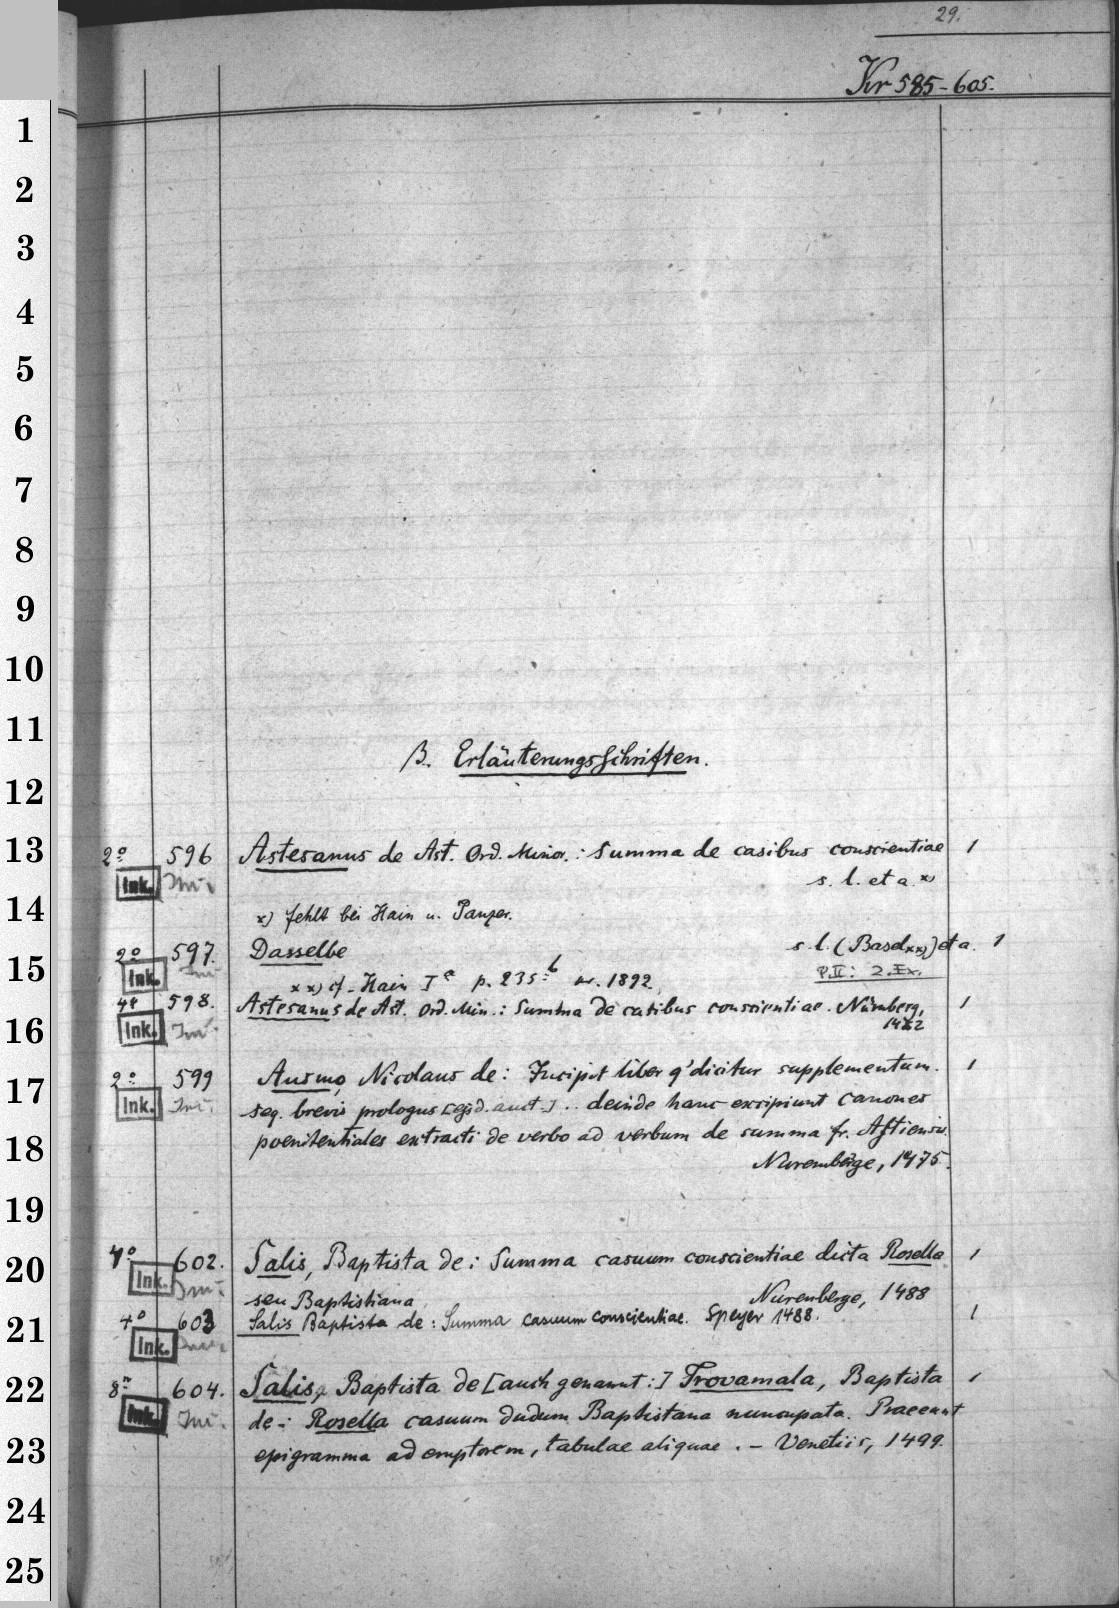 29.
Kr 585-605.
1
2
3
4
5
6
7
8
9
10
11
B. Erläuterungsschriften.
12
13 2° 596 Astesanus de Ast. Ord. Minor.: Summa de casibus conscientiae 1
Ink. s. l. et a. x)
14 x) fehlt bei Hain u. Panzer.
2° 597. Dasselbe s. l. (Basel xx)) et a. 1
15 Ink. xx) cf. Hain I a p. 235 b nr. 1892. P. II: 2. Ex.
4° 598. Astesanus de Ast. Ord. Min.: Summa de casibus conscientiae. Nürnberg, 1
16 Ink. 1482
17 2° 599 Ausmo, Nicolaus de: Incipit liber q' dicitur supplementum. 1
Ink. seq. brevis prologus [ejsd. auct.] .. deinde hanc excipiunt canones
18 poenitentiales extracti de verbo ad verbum de summa fr. Astiensis.
Nuremberge, 1475.
19
20 4° 602. Salis, Baptista de: Summa casuum conscientiae dicta Rosella 1
Ink. seu Baptistiana Nurenberge, 1488
21 4° 603 Salis Baptista de: Summa casuum conscientiae. Speyer 1488. 1
Ink.
22 8° 604. Salis, Baptista de [auch genannt:] Trovamala, Baptista 1
Ink. de: Rosella casuum dudum Baptistana nuncupata. Praeeunt
23 epigramma ad emptorem, tabulae aliquae. - Venetiis, 1499.
24
25